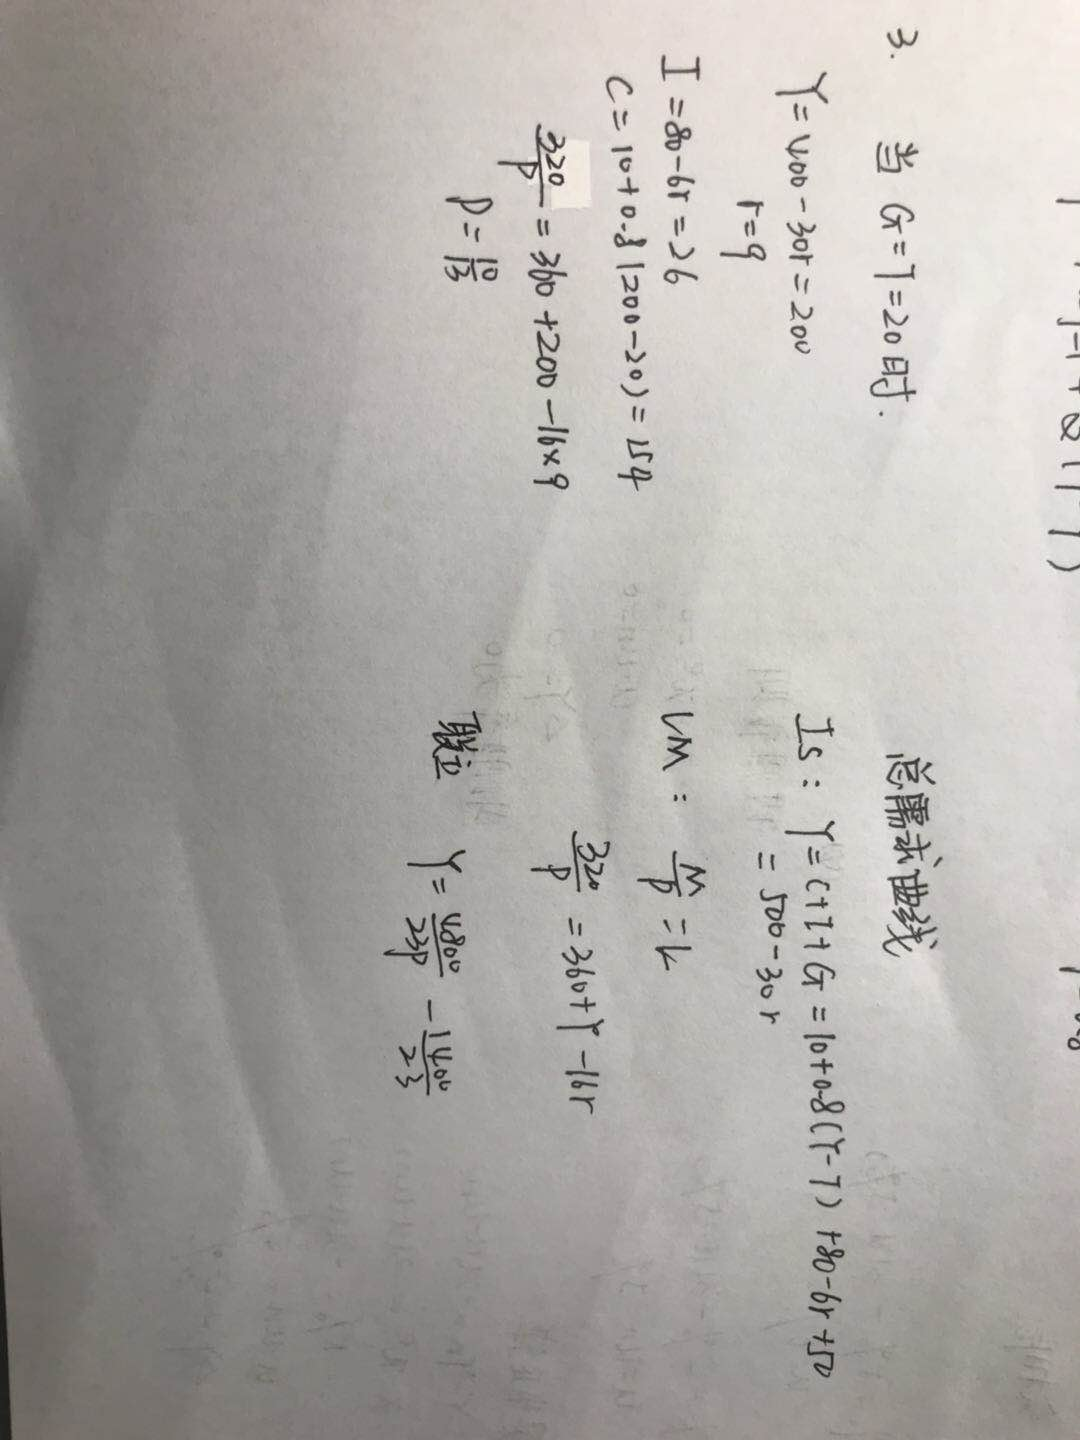 3. 当 G=T=20时.
Y=400-30r=200
r=9
I=80-6r=26
C=10+0.8(200-20)=154
320/P=360+200-16×9
P=10/13
总需求曲线
IS: Y=C+I+G=10+0.8(Y-T)+80-6r+50
=500-30r
LM: M/P=L
320/P=360+Y-16r
联立 Y=4800/23P-1400/23